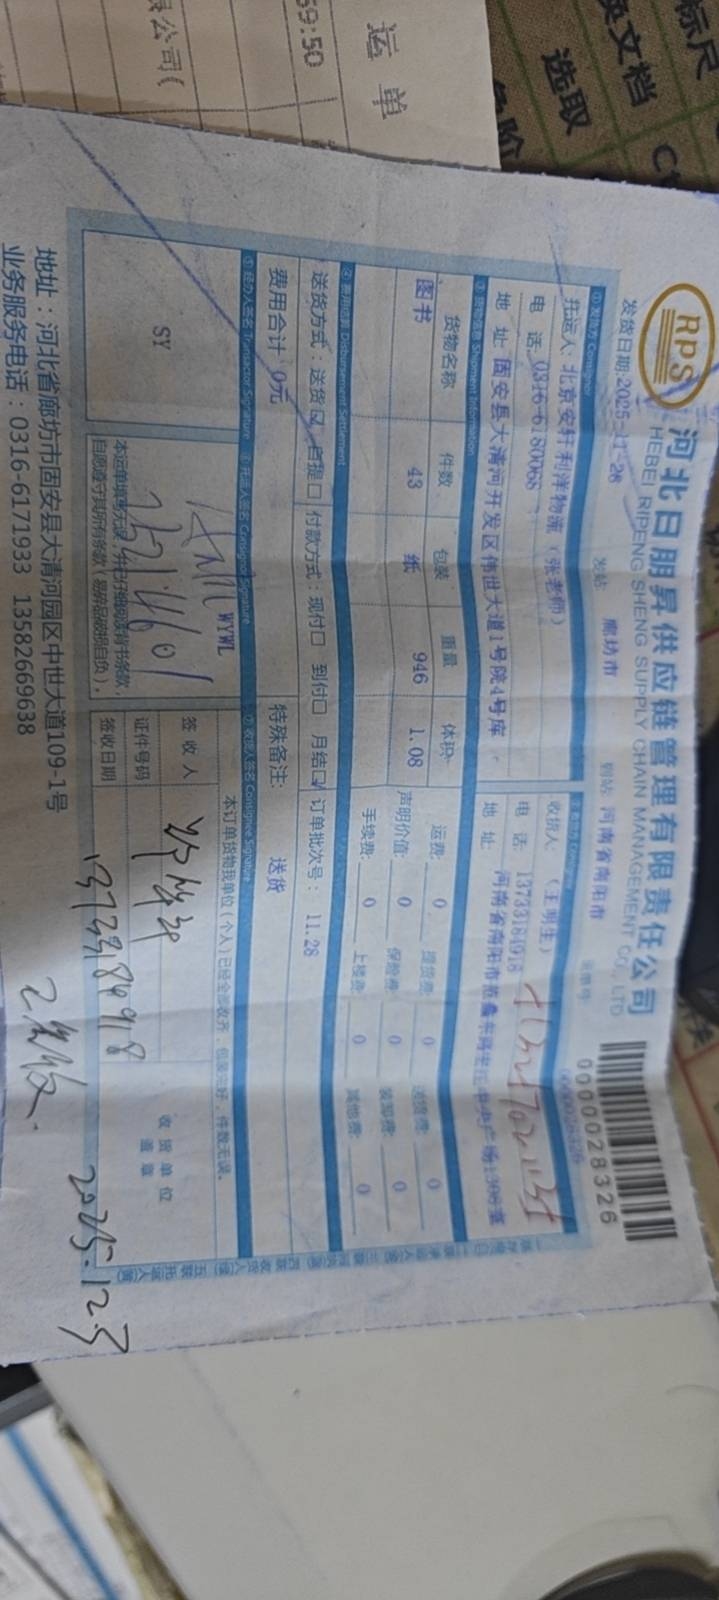 运单
59:50
限公司(
标尺
换文档
选取
色阶
RPS
河北日朋昇供应链管理有限责任公司
HEBEI RIPENG SHENG SUPPLY CHAIN MANAGEMENT CO., LTD
0000028326
发货日期:2025-11-28 发站 廊坊市 到站 河南省南阳市 运单号: 0000028326
①发货方 Consignor
托运人: 北京安轩利洋物流 (张老师) 收货人: (王明生)
电 话: 0316-6180068 电 话: 13733184918
地 址: 固安县大清河开发区伟世大道1号院4号库 地 址:
③货物信息 Shipment Information
货物名称 件数 包装 重量 体积 运费: 0 提货费: 0 送货费: 0
图书 43 纸 946 1.08 声明价值: 0 保险费: 0 装卸费: 0
手续费: 0 上楼费: 0 其他费: 0
④费用结算 Disbursement Settlement
送货方式:送货☑ 自提□ 付款方式:现付□ 到付□ 月结☑ 订单批次号: 11.28
费用合计 0元 特殊备注: 送货
⑤经办人签名 Transactor Signature ⑥托运人签名 Consignor Signature ⑦收货人签名 Consignee Signature
SY
WYWL
本订单货物我单位(个人)已经全部收齐,包装完好,件数无误。
签收人
证件号码
签收日期
13733184918
收货单位
盖章
2025.12.3
地址:河北省廊坊市固安县大清河园区中世大道109-1号
业务服务电话:0316-6171933 13582669638